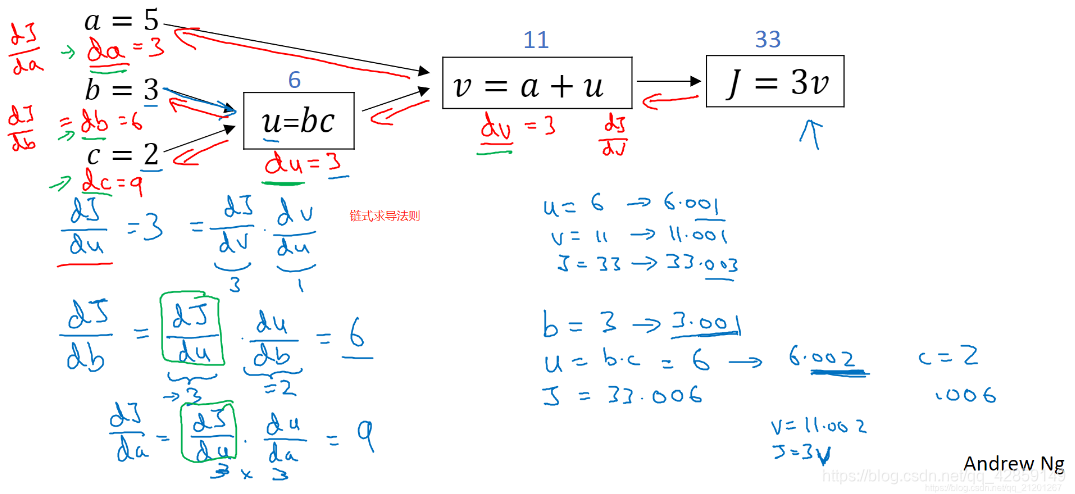 dJ/da → da = 3
a = 5
b = 3
dJ/db = db = 6
→
c = 2
→ dc = 9
6
u=bc
du = 3
11
v = a + u
dv = 3 dJ/dv
33
J = 3v
dJ/du = 3 = dJ/dv · dv/du
3 1
链式求导法则
dJ/db = dJ/du · du/db = 6
→3 =2
dJ/da = dJ/du · du/da = 9
3 × 3
u = 6 → 6.001
v = 11 → 11.001
J = 33 → 33.003
b = 3 → 3.001
u = b·c = 6 → 6.002 c = 2
J = 33.006 .006
v = 11.002
J = 3v
Andrew Ng